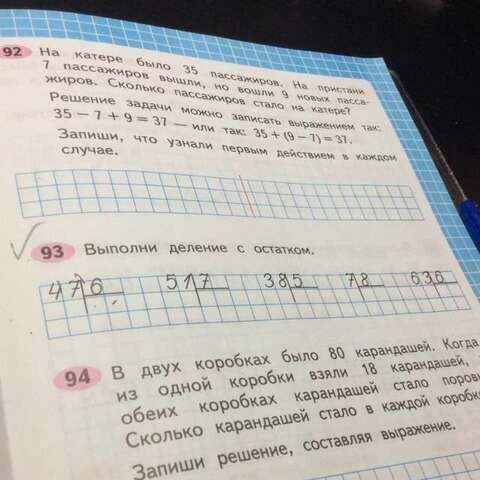 92 На катере было 35 пассажиров. На пристани
7 пассажиров вышли, но вошли 9 новых пасса-
жиров. Сколько пассажиров стало на катере?
Решение задачи можно записать выражением так:
35 − 7 + 9 = 37 — или так: 35 + (9 − 7) = 37.
Запиши, что узнали первым действием в каждом
случае.
93 Выполни деление с остатком.
47 6 51 7 38 5 7 8 63 6
94 В двух коробках было 80 карандашей. Когда
из одной коробки взяли 18 карандашей,
обеих коробках карандашей стало поров
Сколько карандашей стало в каждой коробк
Запиши решение, составляя выражение.